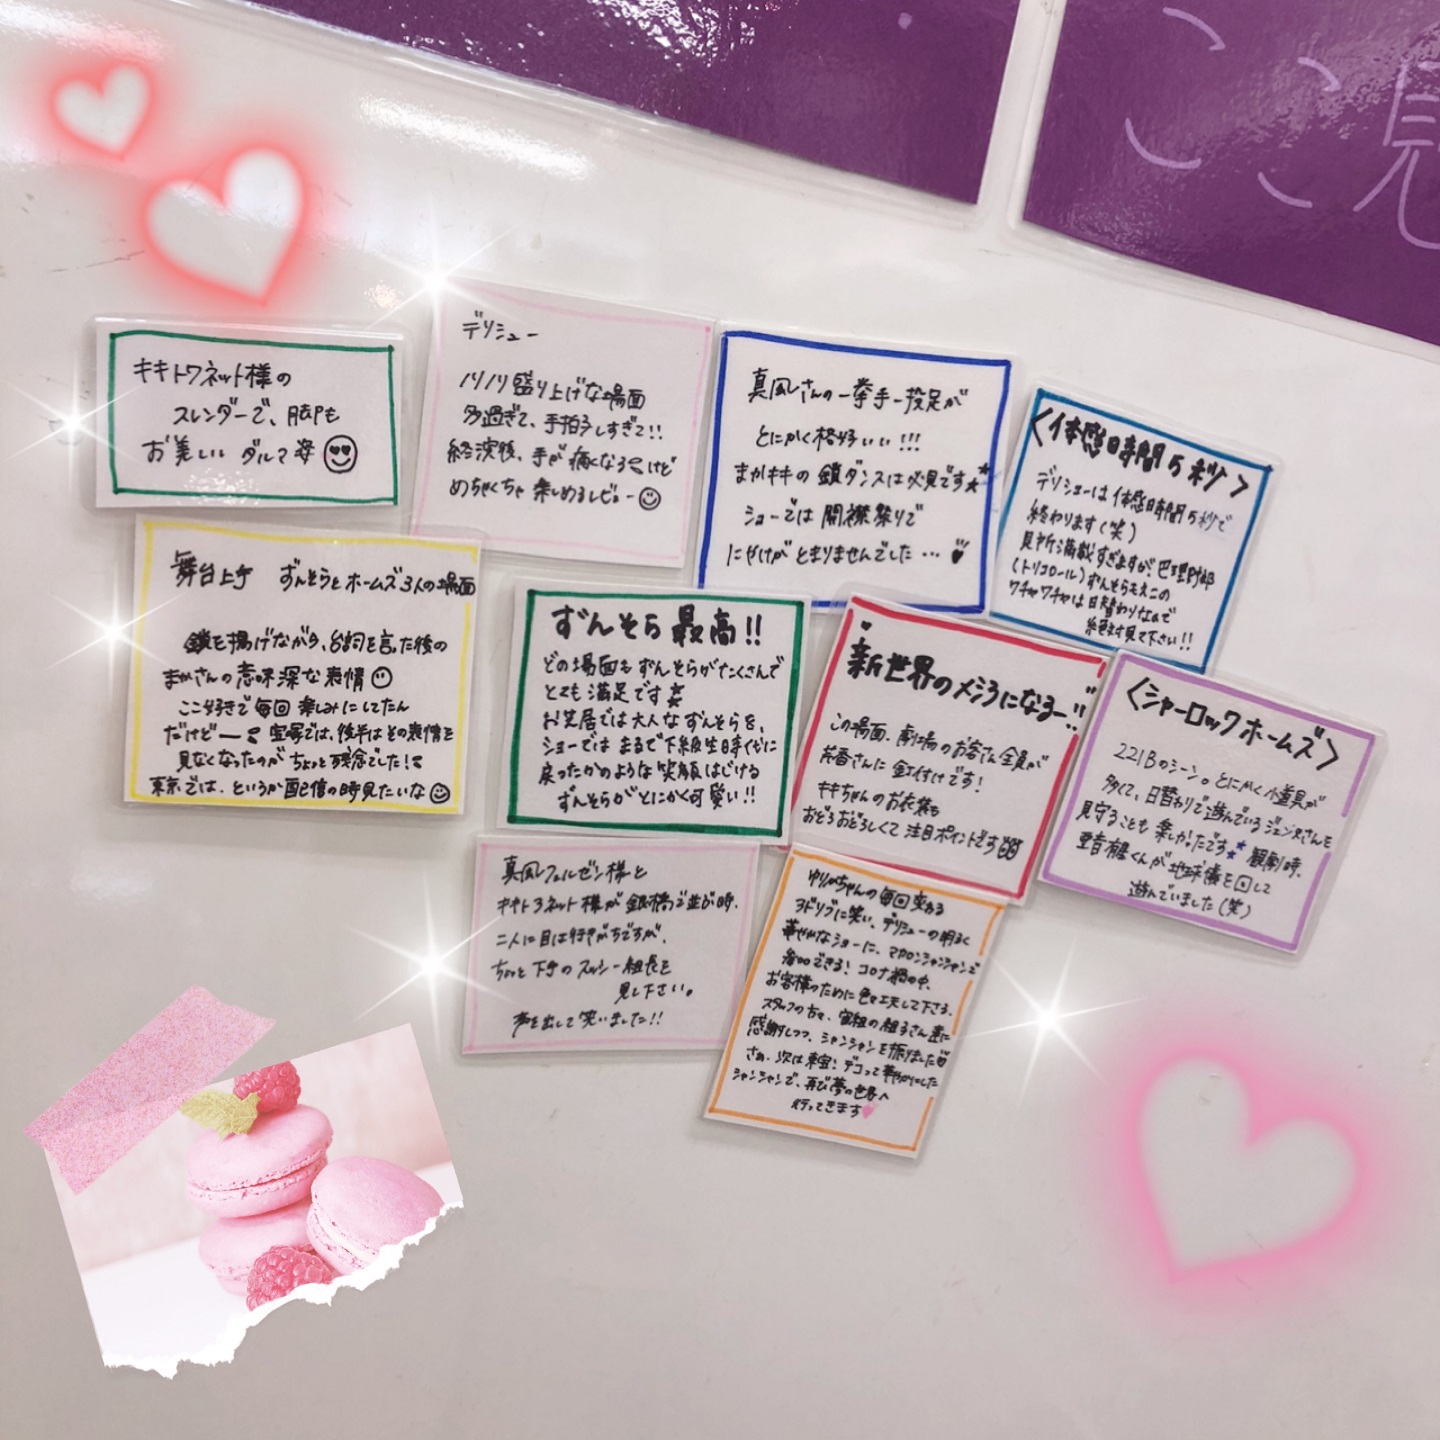 ここ見
キキトワネット様の
スレンダーで、脚も
お美しい ダルマ姿
デリシュー
ノリノリ盛り上げな場面
多過ぎて、手拍子しすぎて!!
終演後、手が痛くなる けど
めちゃくちゃ 楽しめるレビュー
真風さんの一挙手一投足が
とにかく格好いい!!!
まかキキの鎖ダンスは必見です★
ショーでは 開襟祭りで
にやけがとまりませんでした…
<体感時間5秒>
デリシューは体感時間5秒で
終わります(笑)
見所満載すぎますが、巴里野郎
(トリコロール)ずんそらもえこの
ワチャワチャは日替わりなので
絶対見て下さい!!
舞台上手 ずんそらとホームズ3人の場面
鎖を揚げながら、台詞を言った後の
まかさんの意味深な表情
ここ好きで毎回楽しみにしてたん
だけどー 宝塚では、後半はその表情を
見なくなったのが ちょっと残念でした!
東京では、というか配信の時見たいな
ずんそら最高!!
どの場面もずんそらがたくさんで
とても満足です
お芝居では大人なずんそらを、
ショーではまるで下級生時代に
戻ったかのような笑顔はじける
ずんそらがとにかく可愛い!!
新世界のメシウになるー!!
この場面、劇場のお客さん全員が
芹香さんに釘付けです!
キキちゃんのお衣装も
おどろおどろしくて注目ポイントです
<シャーロックホームズ>
221Bのシーン。とにかく小道具が
多くて、日替わりで遊んでいるジェンヌさんを
見守ることも楽しかったです★ 観劇時、
亜音有星くんが地球儀を回して
遊んでいました(笑)
真風フェルゼン様と
キキトワネット様が銀橋で並ぶ時、
二人に目は行きがちですが、
ちょっと下手のスッシー組長を
見て下さい。
声を出して笑いました!!
ゆりかちゃんの毎回変わる
アドリブに笑い、デリシューの明るく
華やかなショーに、マカロンシャンシャンで
参加できる! コロナ禍の中、
お客様のために色々工夫して下さる、
スタッフの方々、宙組の組子さん達に
感謝しつつ、シャンシャンを振りました
さぁ、次は東宝! デコって華やかにした
シャンシャンで、再び夢の世界へ
行ってきます